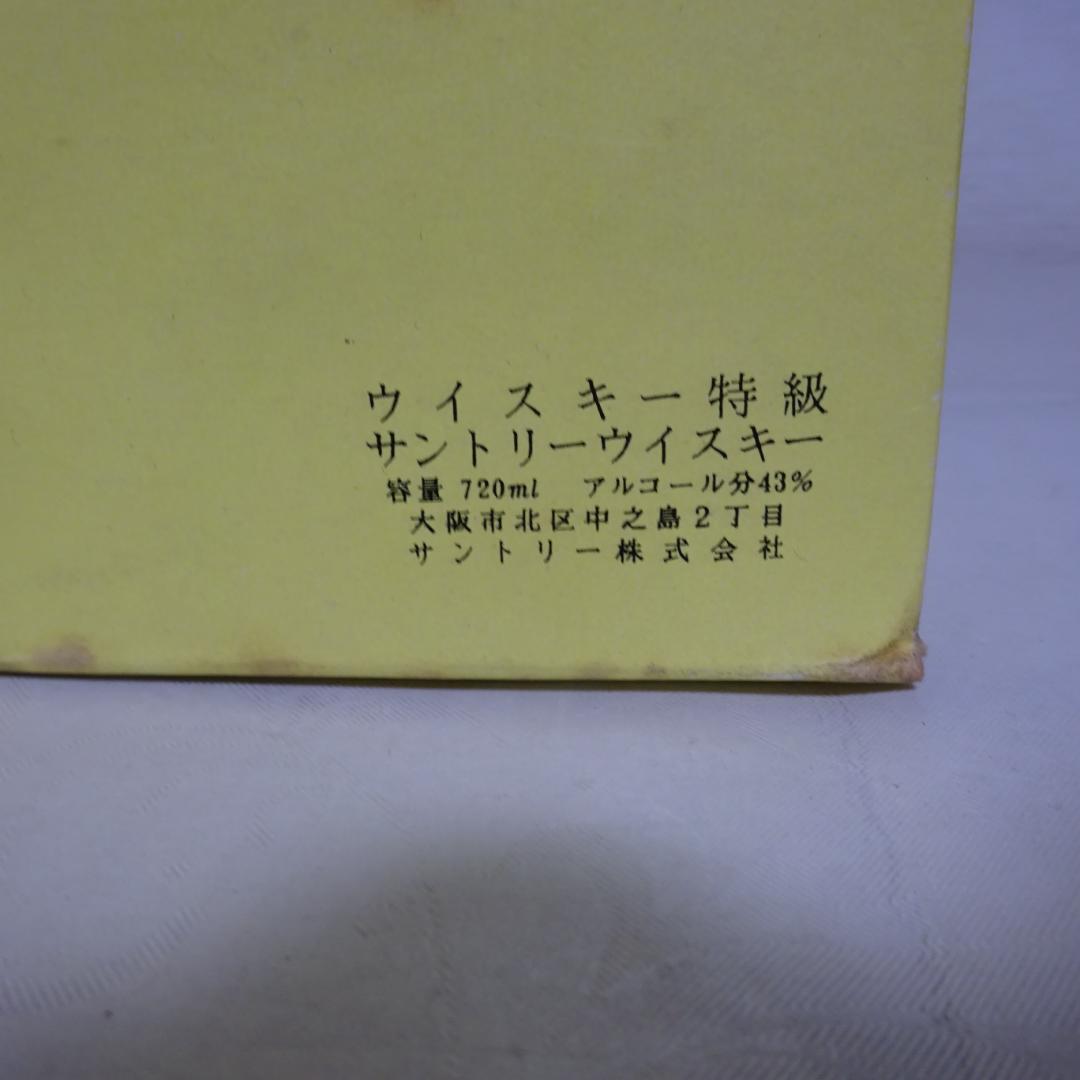 ウイスキー特級
サントリーウイスキー
容量 720ml アルコール分43%
大阪市北区中之島2丁目
サントリー株式会社